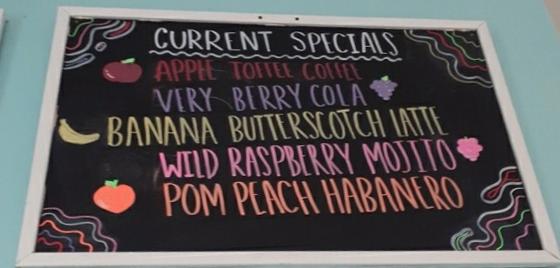 CURRENT SPECIALS
APPLE TOFFEE COFFEE
VERY BERRY COLA
BANANA BUTTERSCOTCH LATTE
WILD RASPBERRY MOJITO
POM PEACH HABANERO